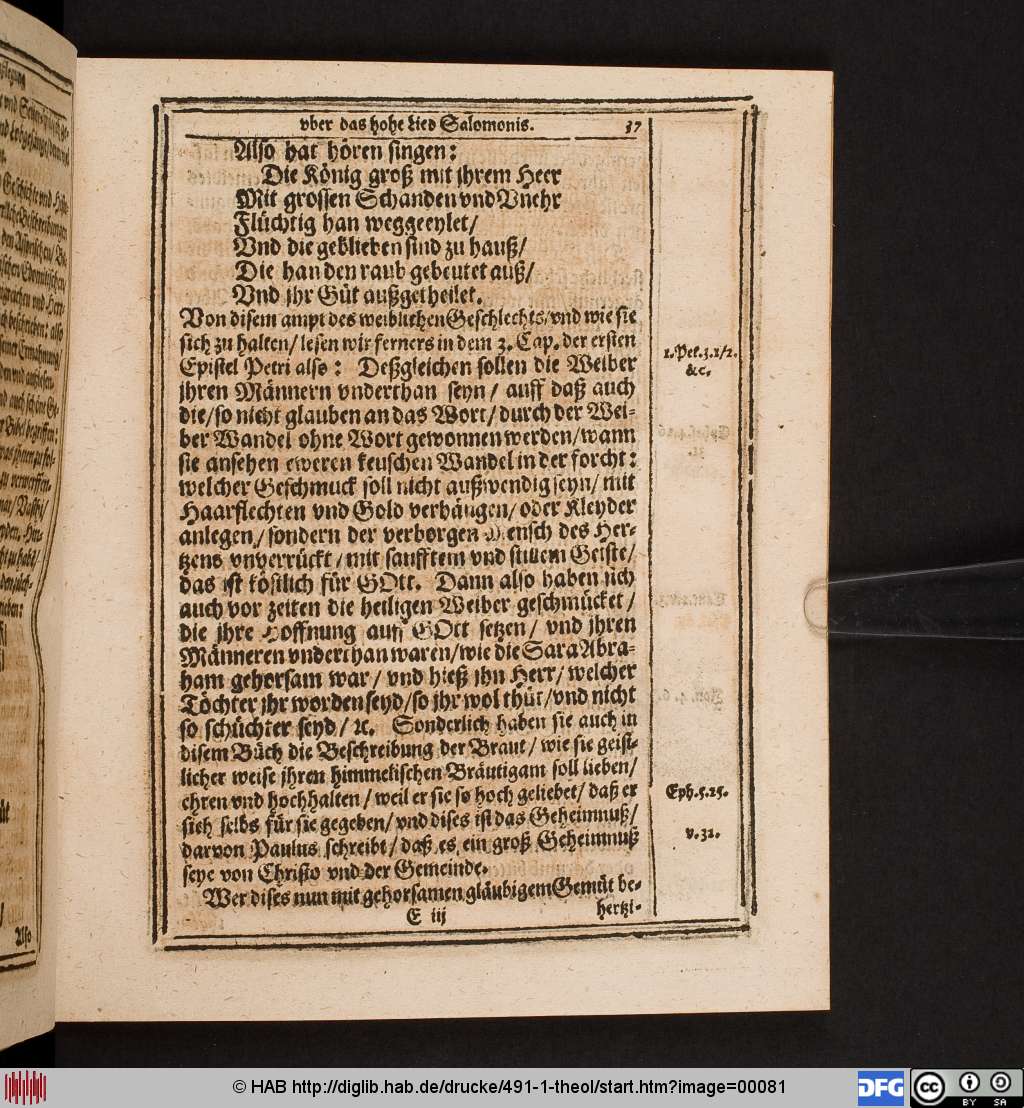 vber das hohe Lied Salomonis. 37
Also hat hören singen:
Die König groß mit jhrem Heer
Mit grossen Schanden vnd Vnehr
Flüchtig han weggeeylet/
Vnd die geblieben sind zu hauß/
Die han den raub gebeutet auß/
Vnd jhr Güt außgetheilet.
Von disem ampt des weiblichen Geschlechts/vnd wie sie
sich zu halten/ lesen wir ferners in dem 3. Cap. der ersten
Epistel Petri also: Deßgleichen sollen die Weiber
jhren Männern vnderthan seyn/ auff daß auch
die/so nicht glauben an das Wort/ durch der Wei-
ber Wandel ohne Wort gewonnen werden/wann
sie ansehen eweren keuschen Wandel in der forcht:
welcher Geschmuck soll nicht außwendig seyn/ mit
Haarflechten vnd Gold verhängen/ oder Kleyder
anlegen/ sondern der verborgen Mensch des Her-
tzens vnverrückt/ mit sanfftem vnd stillem Geiste/
das ist köstlich für GOtt. Dann also haben sich
auch vor zeiten die heiligen Weiber geschmücket/
die jhre Hoffnung auff GOtt setzen/ vnd jhren
Männeren vnderthan waren/wie die Sara Abra-
ham gehorsam war/ vnd hieß jhn Herr/ welcher
Töchter jhr worden seyd/so jhr wol thüt/vnd nicht
so schüchter seyd/ ꝛc. Sonderlich haben sie auch in
disem Büch die Beschreibung der Braut/ wie sie geist-
licher weise jhren himmelischen Bräutigam soll lieben/
ehren vnd hochhalten/ weil er sie so hoch geliebet/ daß er
sich selbs für sie gegeben/ vnd dises ist das Geheimnuß/
darvon Paulus schreibt/ daß es ein groß Geheimnuß
seye von Christo vnd der Gemeinde.
Wer dises nun mit gehorsamen gläubigem Gemüt be-
E iij hertzi-
1. Pet. 3. 1/2.
&c.
Eph. 5. 25.
v. 32.
Also
© HAB http://diglib.hab.de/drucke/491-1-theol/start.htm?image=00081
DFG
cc
BY SA